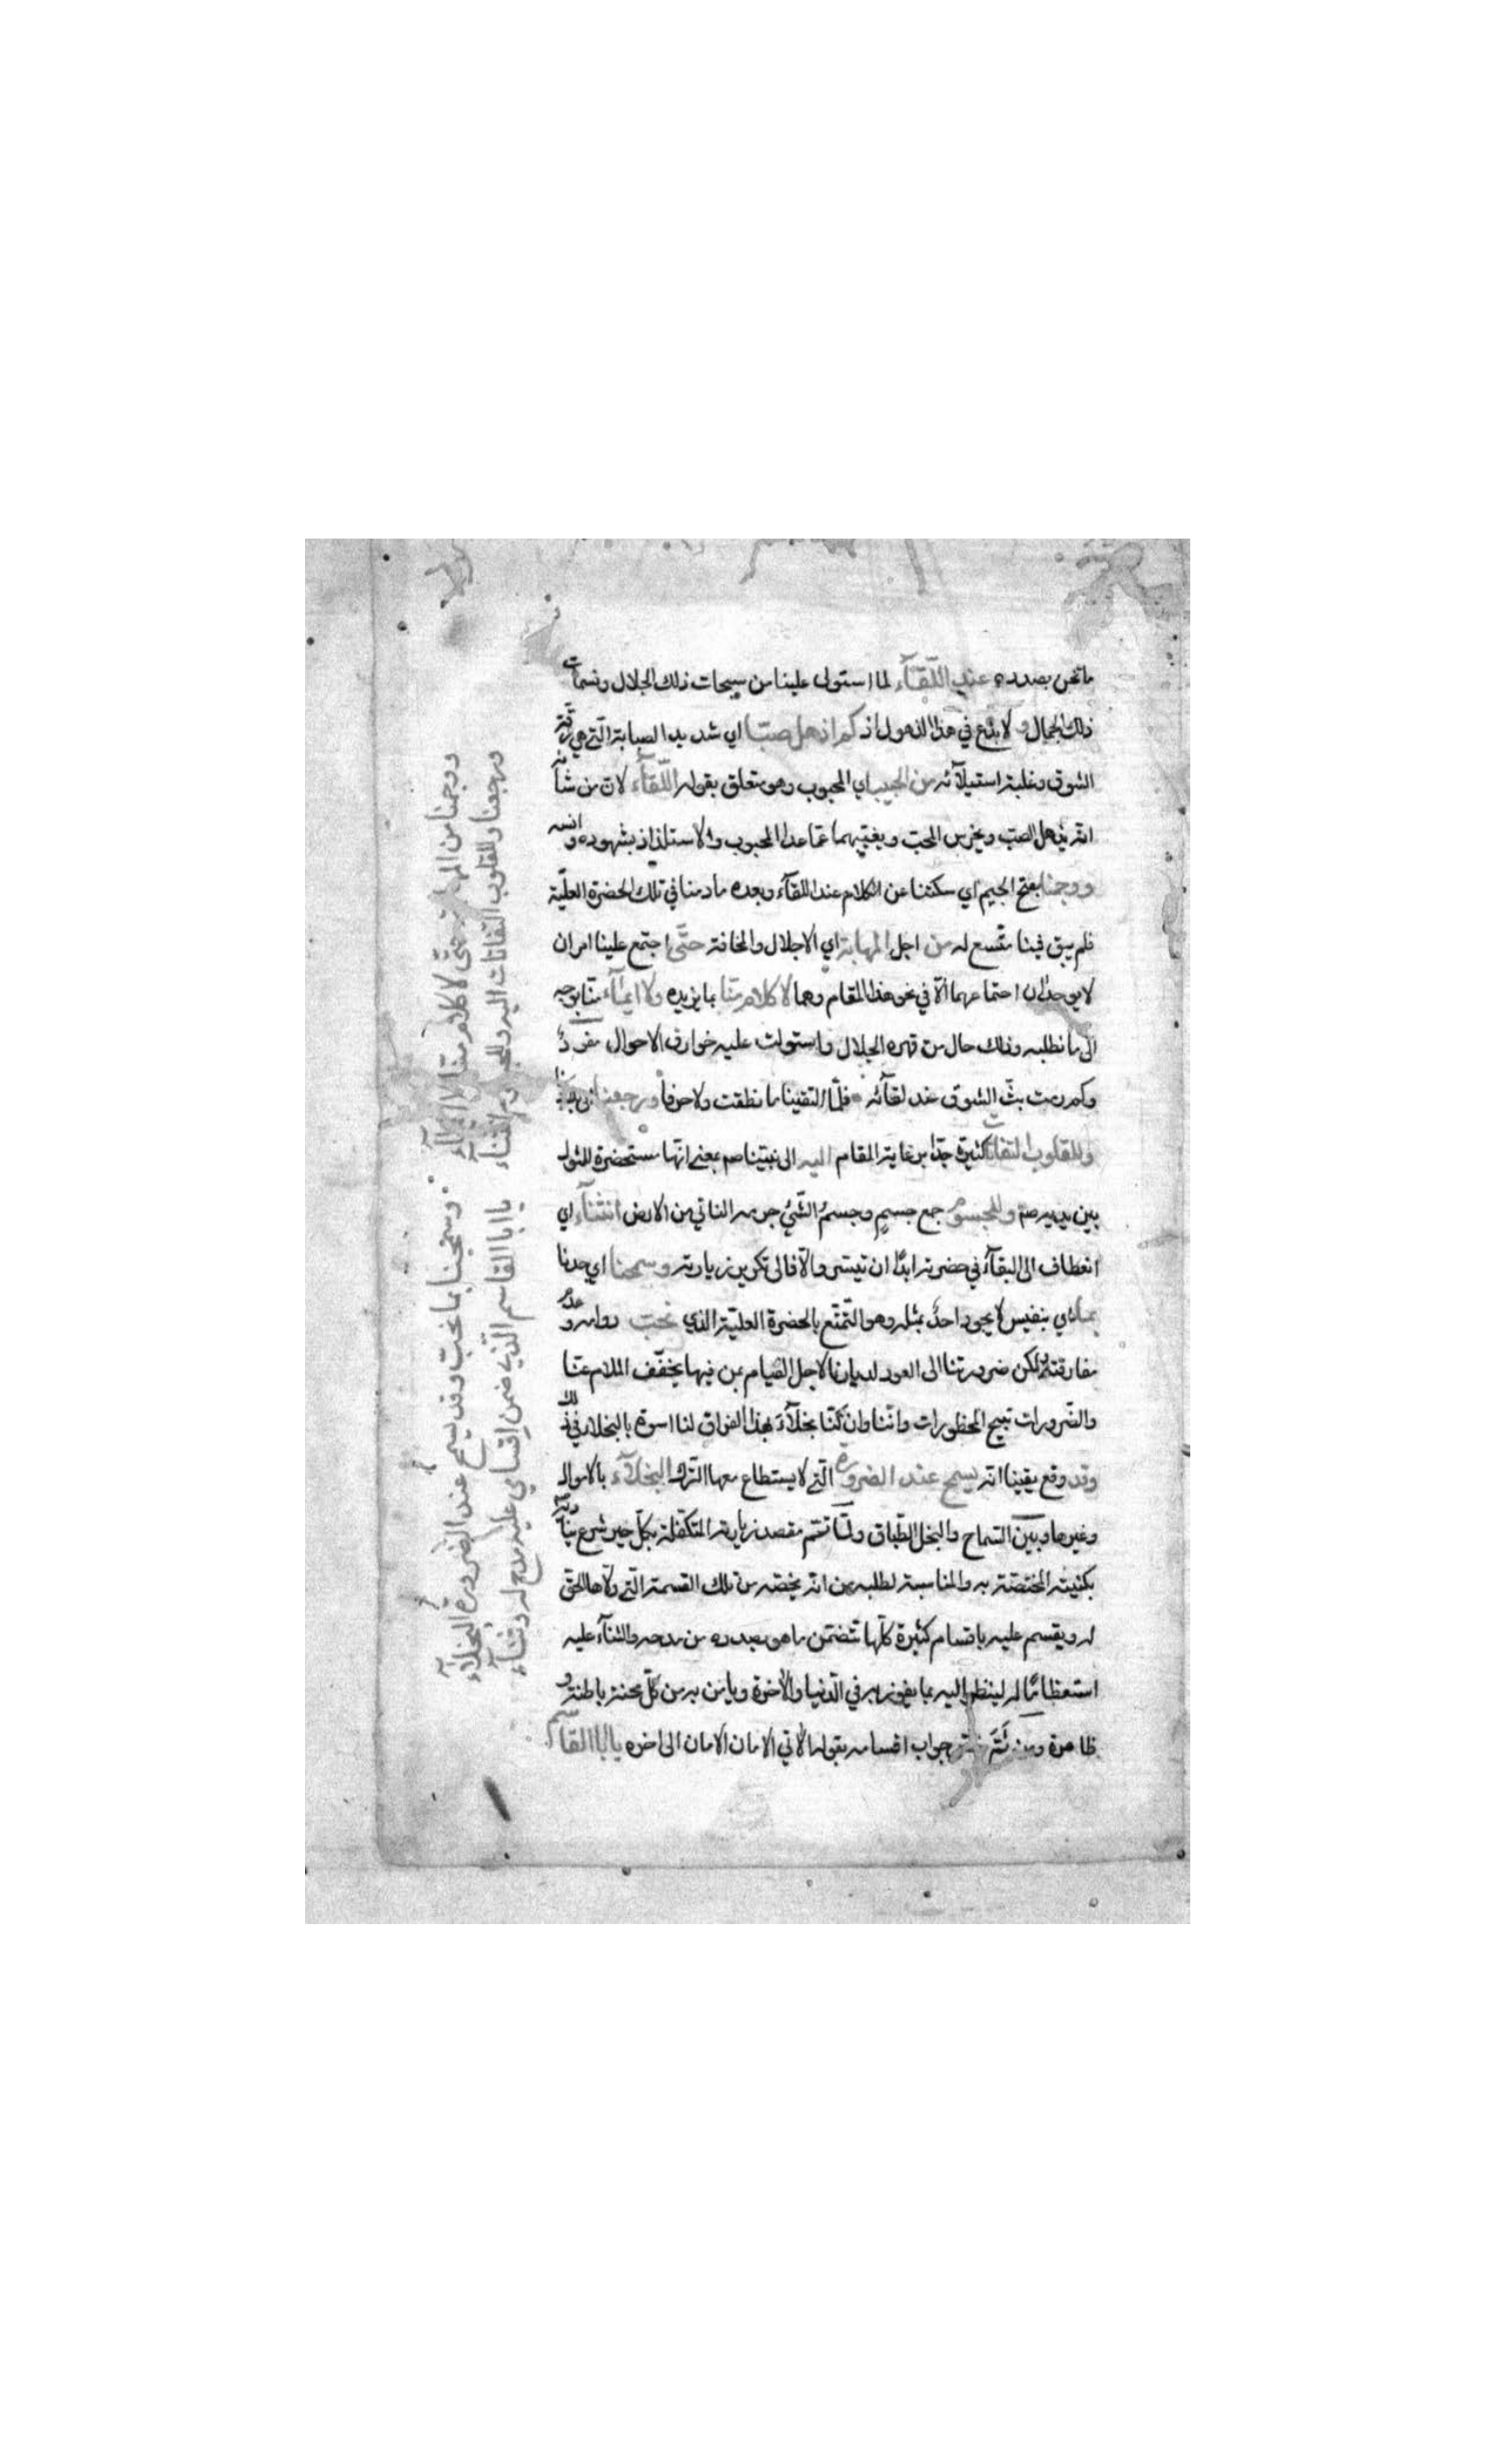 ما نحن بصدده عند اللّقآء لما استولى علينا من سبحات ذلك الجلال ونسمات
ذلك الجمال ولا بدع في هذا الذهول اذ كم اذهل صبّا اي شديد الصبابة الّتي هي رقّة
الشوق وغلبة استيلآئه من الحبيب اي المحبوب وهو متعلق بقوله اللّقآء لان من شأنه
انه يذهل الصبّ ويخرس المحبّ ويغيّبهما عمّا عدا المحبوب والاستلذاذ بشهوده وانسه
ووجمنا بفتح الجيم اي سكتنا عن الكلام عند اللقآء وبعده ما دمنا في تلك الحضرة العليّة
فلم يبق فينا متّسع له من اجل المهابة اي الاجلال والمخافة حتّى اجتمع علينا امران
لا يوجدان اجتماعهما الّا في نحو هذا المقام وهما لا كلام منّا بما نريده ولا ايمآء منّا بوجه
الى ما نطلبه وذلك حال من قهره الجلال واستولت عليه خوارق الاحوال مفرد
وكم رمت بثّ الشوق عند لقآئه فلمّا التقينا ما نطقت ولا حرفا ورجعنا
وللقلوب التفاتات كثيرة جدّا من غاية المقام اليه الى نبيّنا صم بمعنى انّها مستحضرة للمثول
بين يديه صم وللجسوم جمع جسم وجسم الشّيئ جرمه الناتي من الارض انثنآء اي
انعطاف الى البقآء في حضرته ابدًا ان تيسّر والّا فالى تكرير زيارته وسمحنا اي جدنا
بما اي بنفيس لا يجود احدٌ بمثله وهو التّمتّع بالحضرة العليّة الذي نحب دوامه وعدم
مفارقته ولكن ضرورتنا الى العود لديارنا لاجل القيام بمن فيها يخفّف الملام عنّا
والضّرورات تبيح المحظورات وانّنا وان كنّا بخلآء بهذا الفراق لنا اسوة بالبخلاء في ذلك
وقد وقع يقينا انه يسمح عند الضرورة الّتي لا يستطاع معها الترك البخلآء بالاموال
وغيرها وبين السّماح والبخل الطّباق ولمّا تمّم مقصد زيارته المتكفّلة بكلّ خير شرع
بكنيته المختصّة به والمناسبة لطلبه من انه يخصّه من تلك القسمة الّتي ولّاها الحقّ
له ويقسم عليه باقسام كثيرة كلّها تتضمّن ما هو بصدده من مدحه والثنآء عليه
استعظامًا له لينظر اليه بما يفوز به في الدّنيا والآخرة ويأمن به من كلّ محنة باطنة و
ظاهرة ومن ثَمّ جواب اقسامه بقوله الآتي الامان الامان الى اخره يا ابا القآسم
ووجمنا من المهابة حتّى لا كلام منّا ولا ايمآء
ورجعنا وللقلوب التفاتات اليه وللجسوم انثنآء
وسمحنا بما نحبّ وقد يسمح عند الضّرورة البخلآء
يا ابا القاسم الّذي ضمن اقسامي عليه مدح له وثنآء